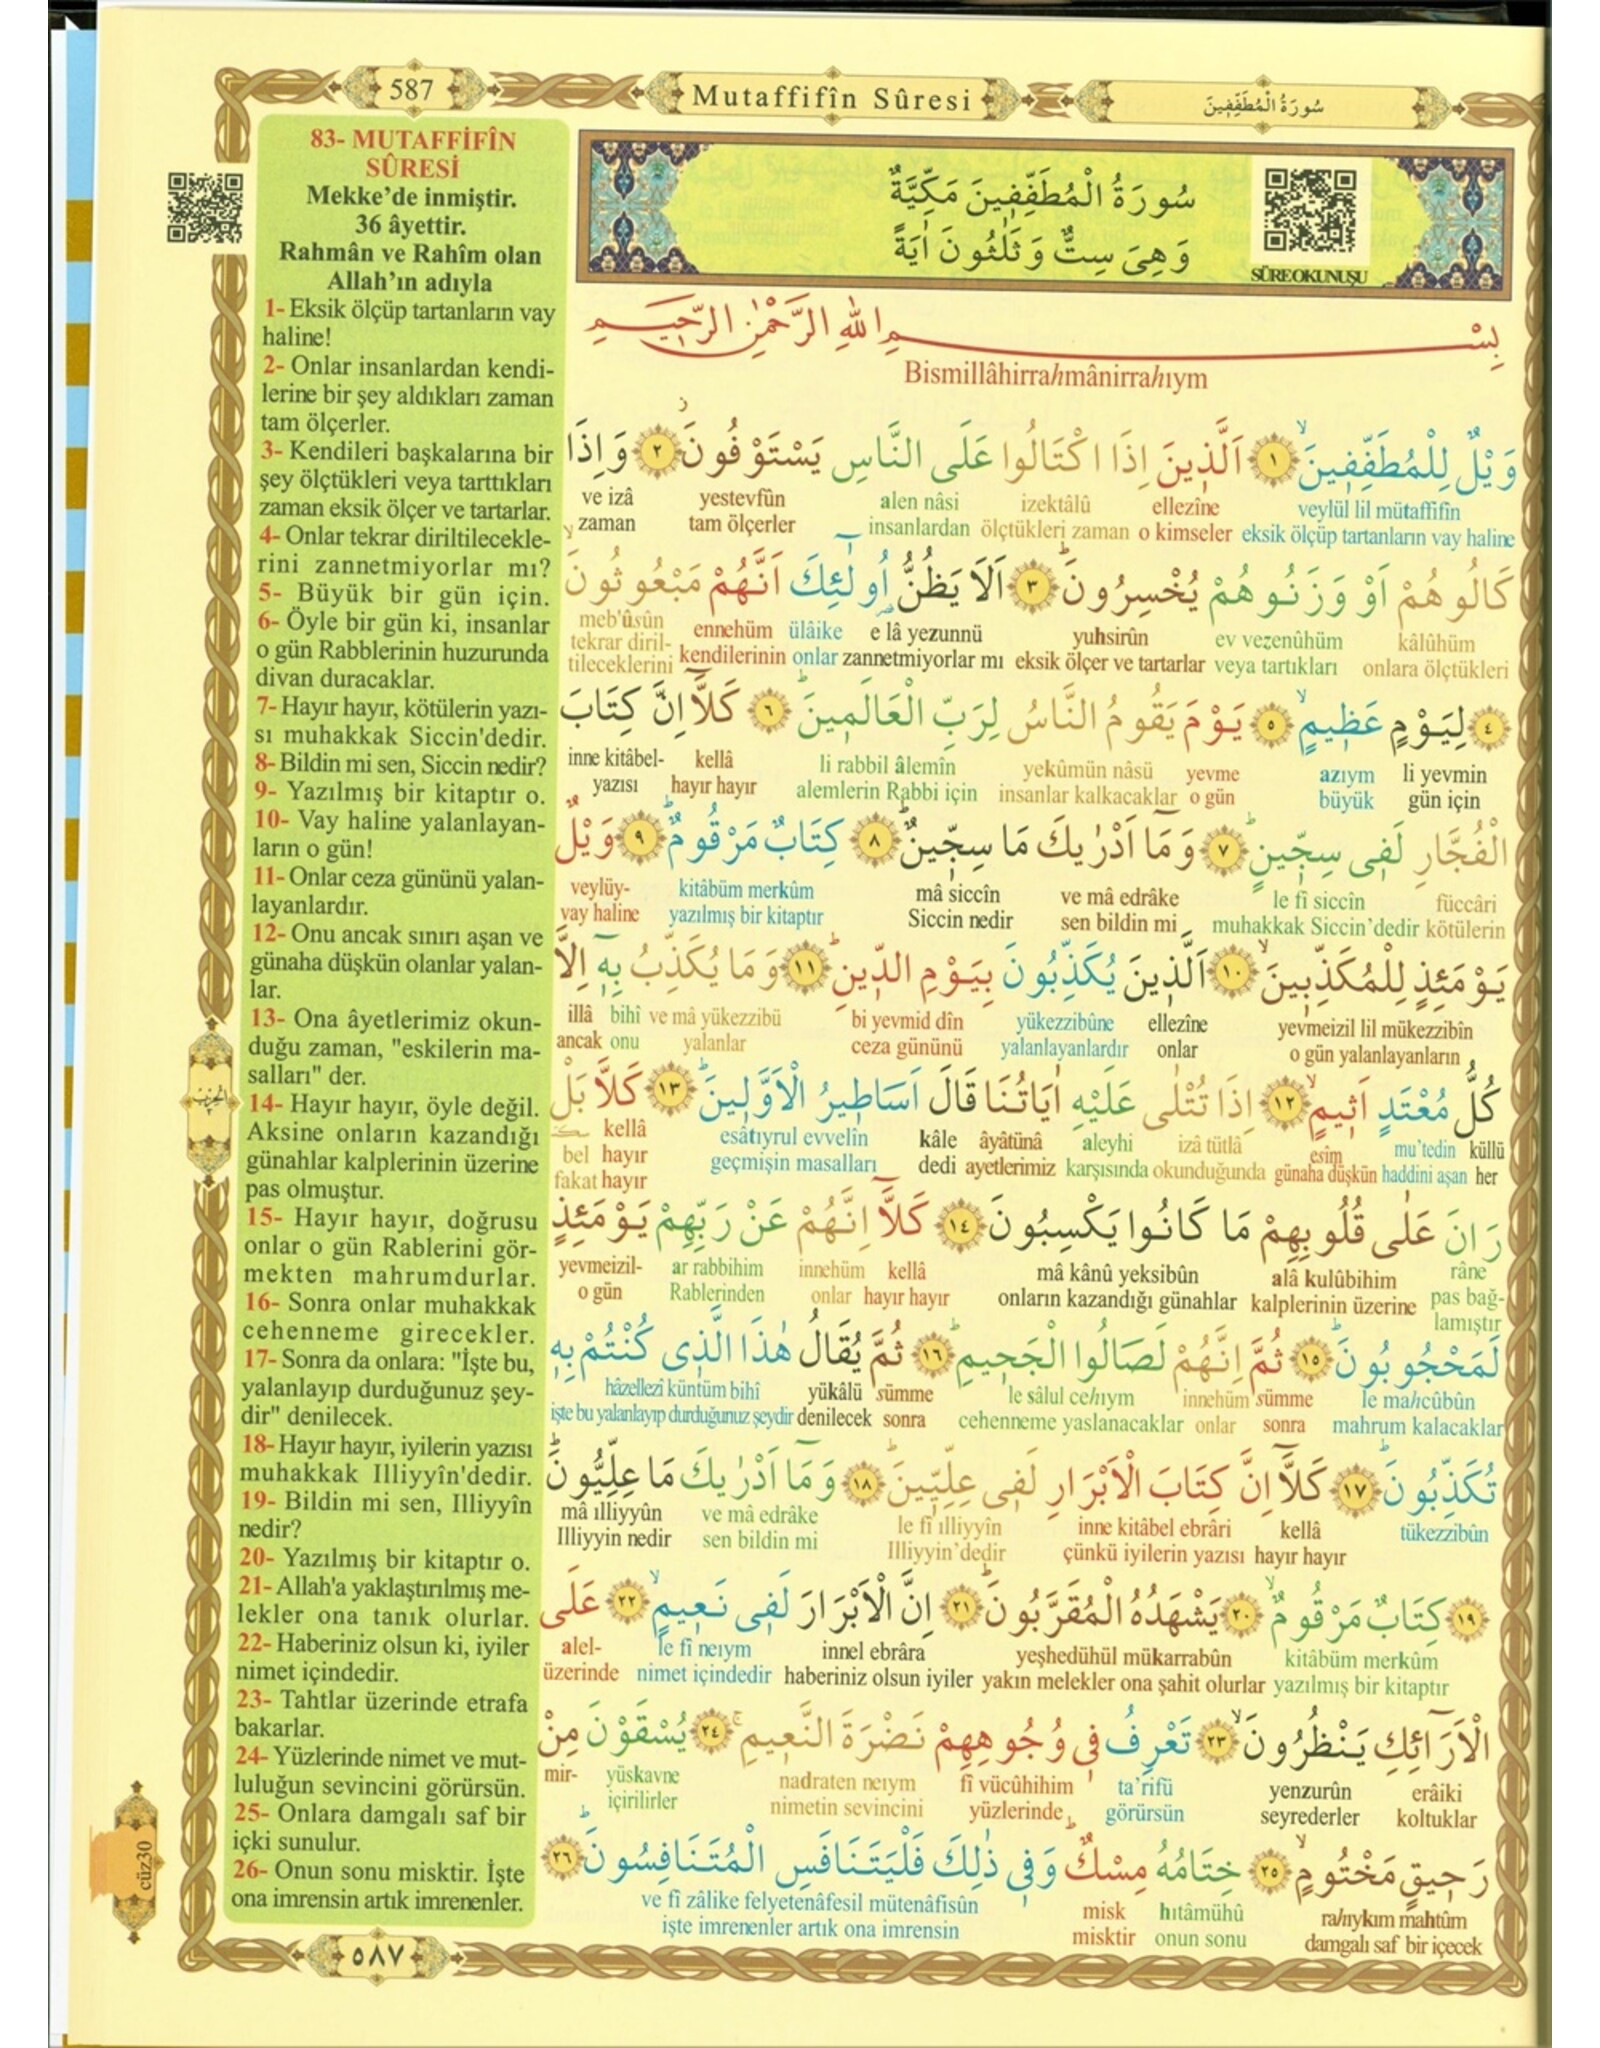 587
Mutaffifîn Sûresi
سُورَةُ الْمُطَفِّفِينَ
83- MUTAFFİFÎN
SÛRESİ
Mekke’de inmiştir.
36 âyettir.
Rahmân ve Rahîm olan
Allah’ın adıyla
1- Eksik ölçüp tartanların vay
haline!
2- Onlar insanlardan kendi-
lerine bir şey aldıkları zaman
tam ölçerler.
3- Kendileri başkalarına bir
şey ölçtükleri veya tarttıkları
zaman eksik ölçer ve tartarlar.
4- Onlar tekrar diriltilecekle-
rini zannetmiyorlar mı?
5- Büyük bir gün için.
6- Öyle bir gün ki, insanlar
o gün Rabblerinin huzurunda
divan duracaklar.
7- Hayır hayır, kötülerin yazı-
sı muhakkak Siccin'dedir.
8- Bildin mi sen, Siccin nedir?
9- Yazılmış bir kitaptır o.
10- Vay haline yalanlayan-
ların o gün!
11- Onlar ceza gününü yalan-
layanlardır.
12- Onu ancak sınırı aşan ve
günaha düşkün olanlar yalan-
lar.
13- Ona âyetlerimiz okun-
duğu zaman, "eskilerin ma-
salları" der.
14- Hayır hayır, öyle değil.
Aksine onların kazandığı
günahlar kalplerinin üzerine
pas olmuştur.
15- Hayır hayır, doğrusu
onlar o gün Rablerini gör-
mekten mahrumdurlar.
16- Sonra onlar muhakkak
cehenneme girecekler.
17- Sonra da onlara: "İşte bu,
yalanlayıp durduğunuz şey-
dir" denilecek.
18- Hayır hayır, iyilerin yazısı
muhakkak Illiyyîn'dedir.
19- Bildin mi sen, Illiyyîn
nedir?
20- Yazılmış bir kitaptır o.
21- Allah'a yaklaştırılmış me-
lekler ona tanık olurlar.
22- Haberiniz olsun ki, iyiler
nimet içindedir.
23- Tahtlar üzerinde etrafa
bakarlar.
24- Yüzlerinde nimet ve mut-
luluğun sevincini görürsün.
25- Onlara damgalı saf bir
içki sunulur.
26- Onun sonu misktir. İşte
ona imrensin artık imrenenler.
سُورَةُ الْمُطَفِّفِينَ مَكِّيَّةٌ
وَهِىَ سِتٌّ وَثَلٰثُونَ اٰيَةً
SÛRE OKUNUŞU
بِسْمِ اللّٰهِ الرَّحْمٰنِ الرَّحِيمِ
Bismillâhirrahmânirrahıym
وَيْلٌ لِلْمُطَفِّفِينَۙ ﴿١﴾ اَلَّذِينَ اِذَا اكْتَالُوا عَلَى النَّاسِ يَسْتَوْفُونَ ﴿٢﴾ وَاِذَا
veylül lil mütaffifîn ellezîne izektâlû alen nâsi yestevfûn ve izâ
eksik ölçüp tartanların vay haline o kimseler ölçtükleri zaman insanlardan tam ölçerler zaman
كَالُوهُمْ اَوْ وَزَنُوهُمْ يُخْسِرُونَۜ ﴿٣﴾ اَلَا يَظُنُّ اُولٰٓئِكَ اَنَّهُمْ مَبْعُوثُونَۙ
kâlûhüm ev vezenûhüm yuhsirûn e lâ yezunnü ülâike ennehüm meb'ûsûn
onlara ölçtükleri veya tartıkları eksik ölçer ve tartarlar zannetmiyorlar mı onlar kendilerinin tekrar diril-
tileceklerini
﴿٤﴾ لِيَوْمٍ عَظِيمٍۙ ﴿٥﴾ يَوْمَ يَقُومُ النَّاسُ لِرَبِّ الْعَالَمِينَۜ ﴿٦﴾ كَلَّٓا اِنَّ كِتَابَ
li yevmin azıym yevme yekûmün nâsü li rabbil âlemîn kellâ inne kitâbel-
gün için büyük o gün insanlar kalkacaklar alemlerin Rabbi için hayır hayır yazısı
الْفُجَّارِ لَفِى سِجِّينٍۜ ﴿٧﴾ وَمَٓا اَدْرٰيكَ مَا سِجِّينٌۜ ﴿٨﴾ كِتَابٌ مَرْقُومٌۜ ﴿٩﴾ وَيْلٌ
füccâri le fî siccîn ve mâ edrâke mâ siccîn kitâbüm merkûm veylüy-
kötülerin muhakkak Siccin’dedir sen bildin mi Siccin nedir yazılmış bir kitaptır vay haline
يَوْمَئِذٍ لِلْمُكَذِّبِينَۙ ﴿١٠﴾ اَلَّذِينَ يُكَذِّبُونَ بِيَوْمِ الدِّينِۜ ﴿١١﴾ وَمَا يُكَذِّبُ بِهٓ اِلَّا
yevmeizil lil mükezzibîn ellezîne yükezzibûne bi yevmid dîn ve mâ yükezzibü bihî illâ
o gün yalanlayanların onlar yalanlayanlardır ceza gününü yalanlar onu ancak
كُلُّ مُعْتَدٍ اَثِيمٍۙ ﴿١٢﴾ اِذَا تُتْلٰى عَلَيْهِ اٰيَاتُنَا قَالَ اَسَاطِيرُ الْاَوَّلِينَۜ ﴿١٣﴾ كَلَّا بَلْ
küllü mu’tedin esîm izâ tütlâ aleyhi âyâtünâ kâle esâtıyrul evvelîn kellâ bel
her haddini aşan günaha düşkün okunduğunda karşısında ayetlerimiz dedi geçmişin masalları hayır hayır fakat
رَانَ عَلٰى قُلُوبِهِمْ مَا كَانُوا يَكْسِبُونَ ﴿١٤﴾ كَلَّٓا اِنَّهُمْ عَنْ رَبِّهِمْ يَوْمَئِذٍ
râne alâ kulûbihim mâ kânû yeksibûn kellâ innehüm ar rabbihim yevmeizil-
pas bağ-
lamıştır kalplerinin üzerine onların kazandığı günahlar hayır hayır onlar Rablerinden o gün
لَمَحْجُوبُونَۜ ﴿١٥﴾ ثُمَّ اِنَّهُمْ لَصَالُوا الْجَحِيمِۜ ﴿١٦﴾ ثُمَّ يُقَالُ هٰذَا الَّذِى كُنْتُمْ بِهِ
le mahcûbûn sümme innehüm le sâlul cehıym sümme yükâlü hâzellezî küntüm bihî
mahrum kalacaklar sonra onlar cehenneme yaslanacaklar sonra denilecek işte bu yalanlayıp durduğunuz şeydir
تُكَذِّبُونَۜ ﴿١٧﴾ كَلَّٓا اِنَّ كِتَابَ الْاَبْرَارِ لَفِى عِلِّيِّينَۜ ﴿١٨﴾ وَمَٓا اَدْرٰيكَ مَا عِلِّيُّونَۜ
tükezzibûn kellâ inne kitâbel ebrâri le fî ılliyyîn ve mâ edrâke mâ ılliyyûn
hayır hayır çünkü iyilerin yazısı Illiyyin’dedir sen bildin mi Illiyyin nedir
﴿١٩﴾ كِتَابٌ مَرْقُومٌۙ ﴿٢٠﴾ يَشْهَدُهُ الْمُقَرَّبُونَۜ ﴿٢١﴾ اِنَّ الْاَبْرَارَ لَفِى نَعِيمٍۙ ﴿٢٢﴾ عَلَى
kitâbüm merkûm yeşhedühül mükarrabûn innel ebrâra le fî neıym alel-
yazılmış bir kitaptır yakın melekler ona şahit olurlar haberiniz olsun iyiler nimet içindedir üzerinde
الْاَرَٓائِكِ يَنْظُرُونَۙ ﴿٢٣﴾ تَعْرِفُ فِى وُجُوهِهِمْ نَضْرَةَ النَّعِيمِۚ ﴿٢٤﴾ يُسْقَوْنَ مِنْ
erâiki yenzurûn ta’rifü fî vücûhihim nadraten neıym yüskavne mir-
koltuklar seyrederler görürsün yüzlerinde nimetin sevincini içirilirler
رَحِيقٍ مَخْتُومٍۙ ﴿٢٥﴾ خِتَامُهُ مِسْكٌۜ وَفِى ذٰلِكَ فَلْيَتَنَافَسِ الْمُتَنَافِسُونَۜ ﴿٢٦﴾
rahıykım mahtûm hıtâmühû misk ve fî zâlike felyetenâfesil mütenâfisûn
damgalı saf bir içecek onun sonu misktir işte imrenenler artık ona imrensin
cüz30
٥٨٧